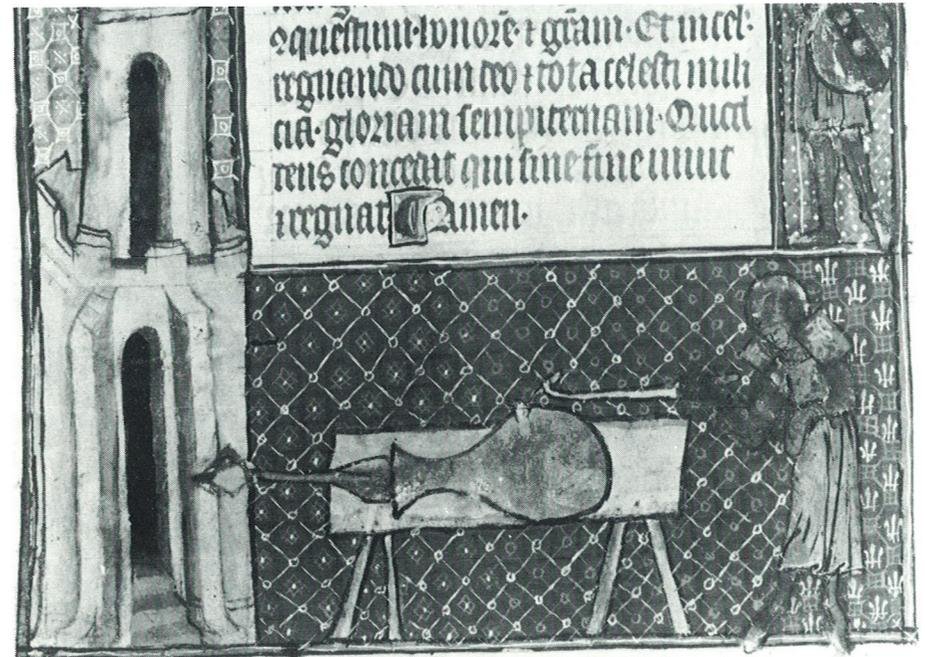 ꝯquestum · honorē · ⁊ grām · Et in cel·
regnando cum deo ⁊ tota celesti mili
cia · gloriam sempiternam · Quod
deus concedat qui sine fine uiuit
⁊ regnat Amen·